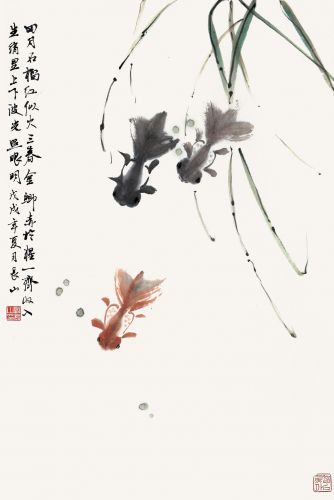 四月石榴红似火三春金鲫赤於猩一齊收入
生绡里上下波光照眼明戊戌年夏月長山